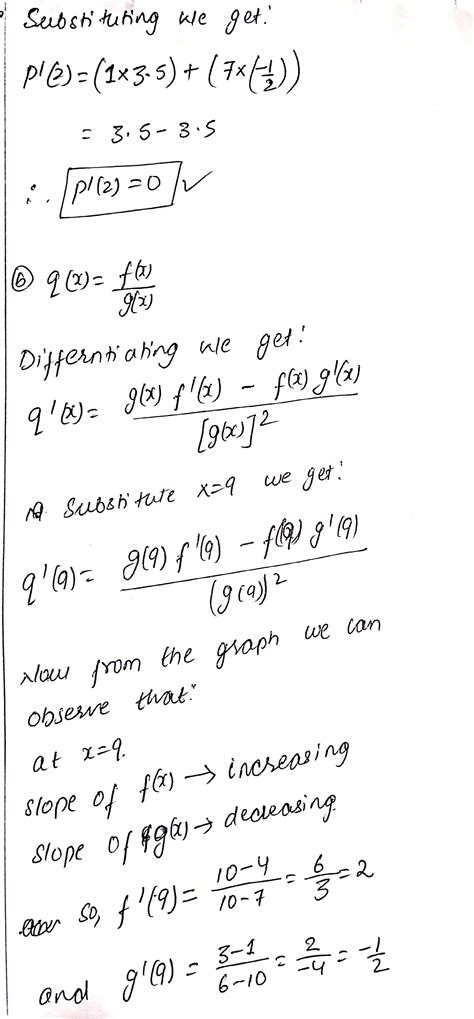 Substituting we get:
p'(2) = (1×3.5) + (7×(-1/2))
= 3.5 - 3.5
∴ p'(2) = 0 ✓
⑥ q(x) = f(x)/g(x)
Differntiating we get:
q'(x) = g(x) f'(x) - f(x) g'(x) / [g(x)]²
Substitute x=9 we get:
q'(9) = g(9) f'(9) - f(9) g'(9) / (g(9))²
Now from the graph we can
observe that:
at x=9.
slope of f(x) → increasing
slope of g(x) → decreasing
so, f'(9) = 10-4/10-7 = 6/3 = 2
and g'(9) = 3-1/6-10 = 2/-4 = -1/2